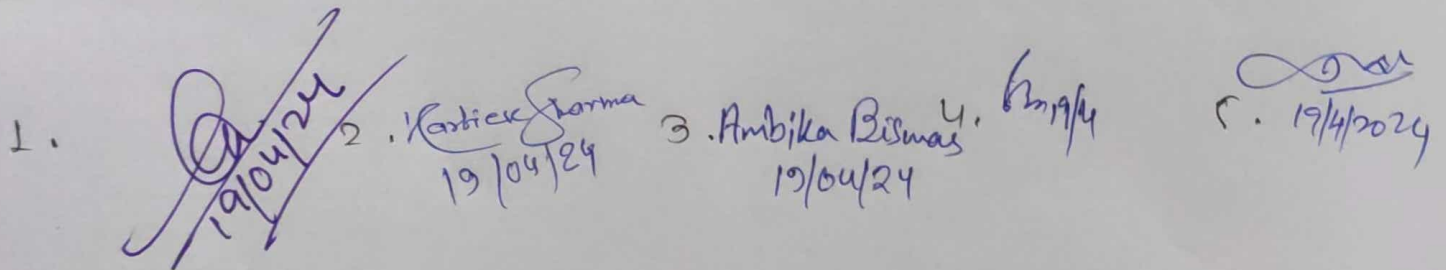 1. 19/04/24
2. Kartick Sharma
19/04/24
3. Ambika Biswas
19/04/24
4. 19/4
5. 19/4/2024